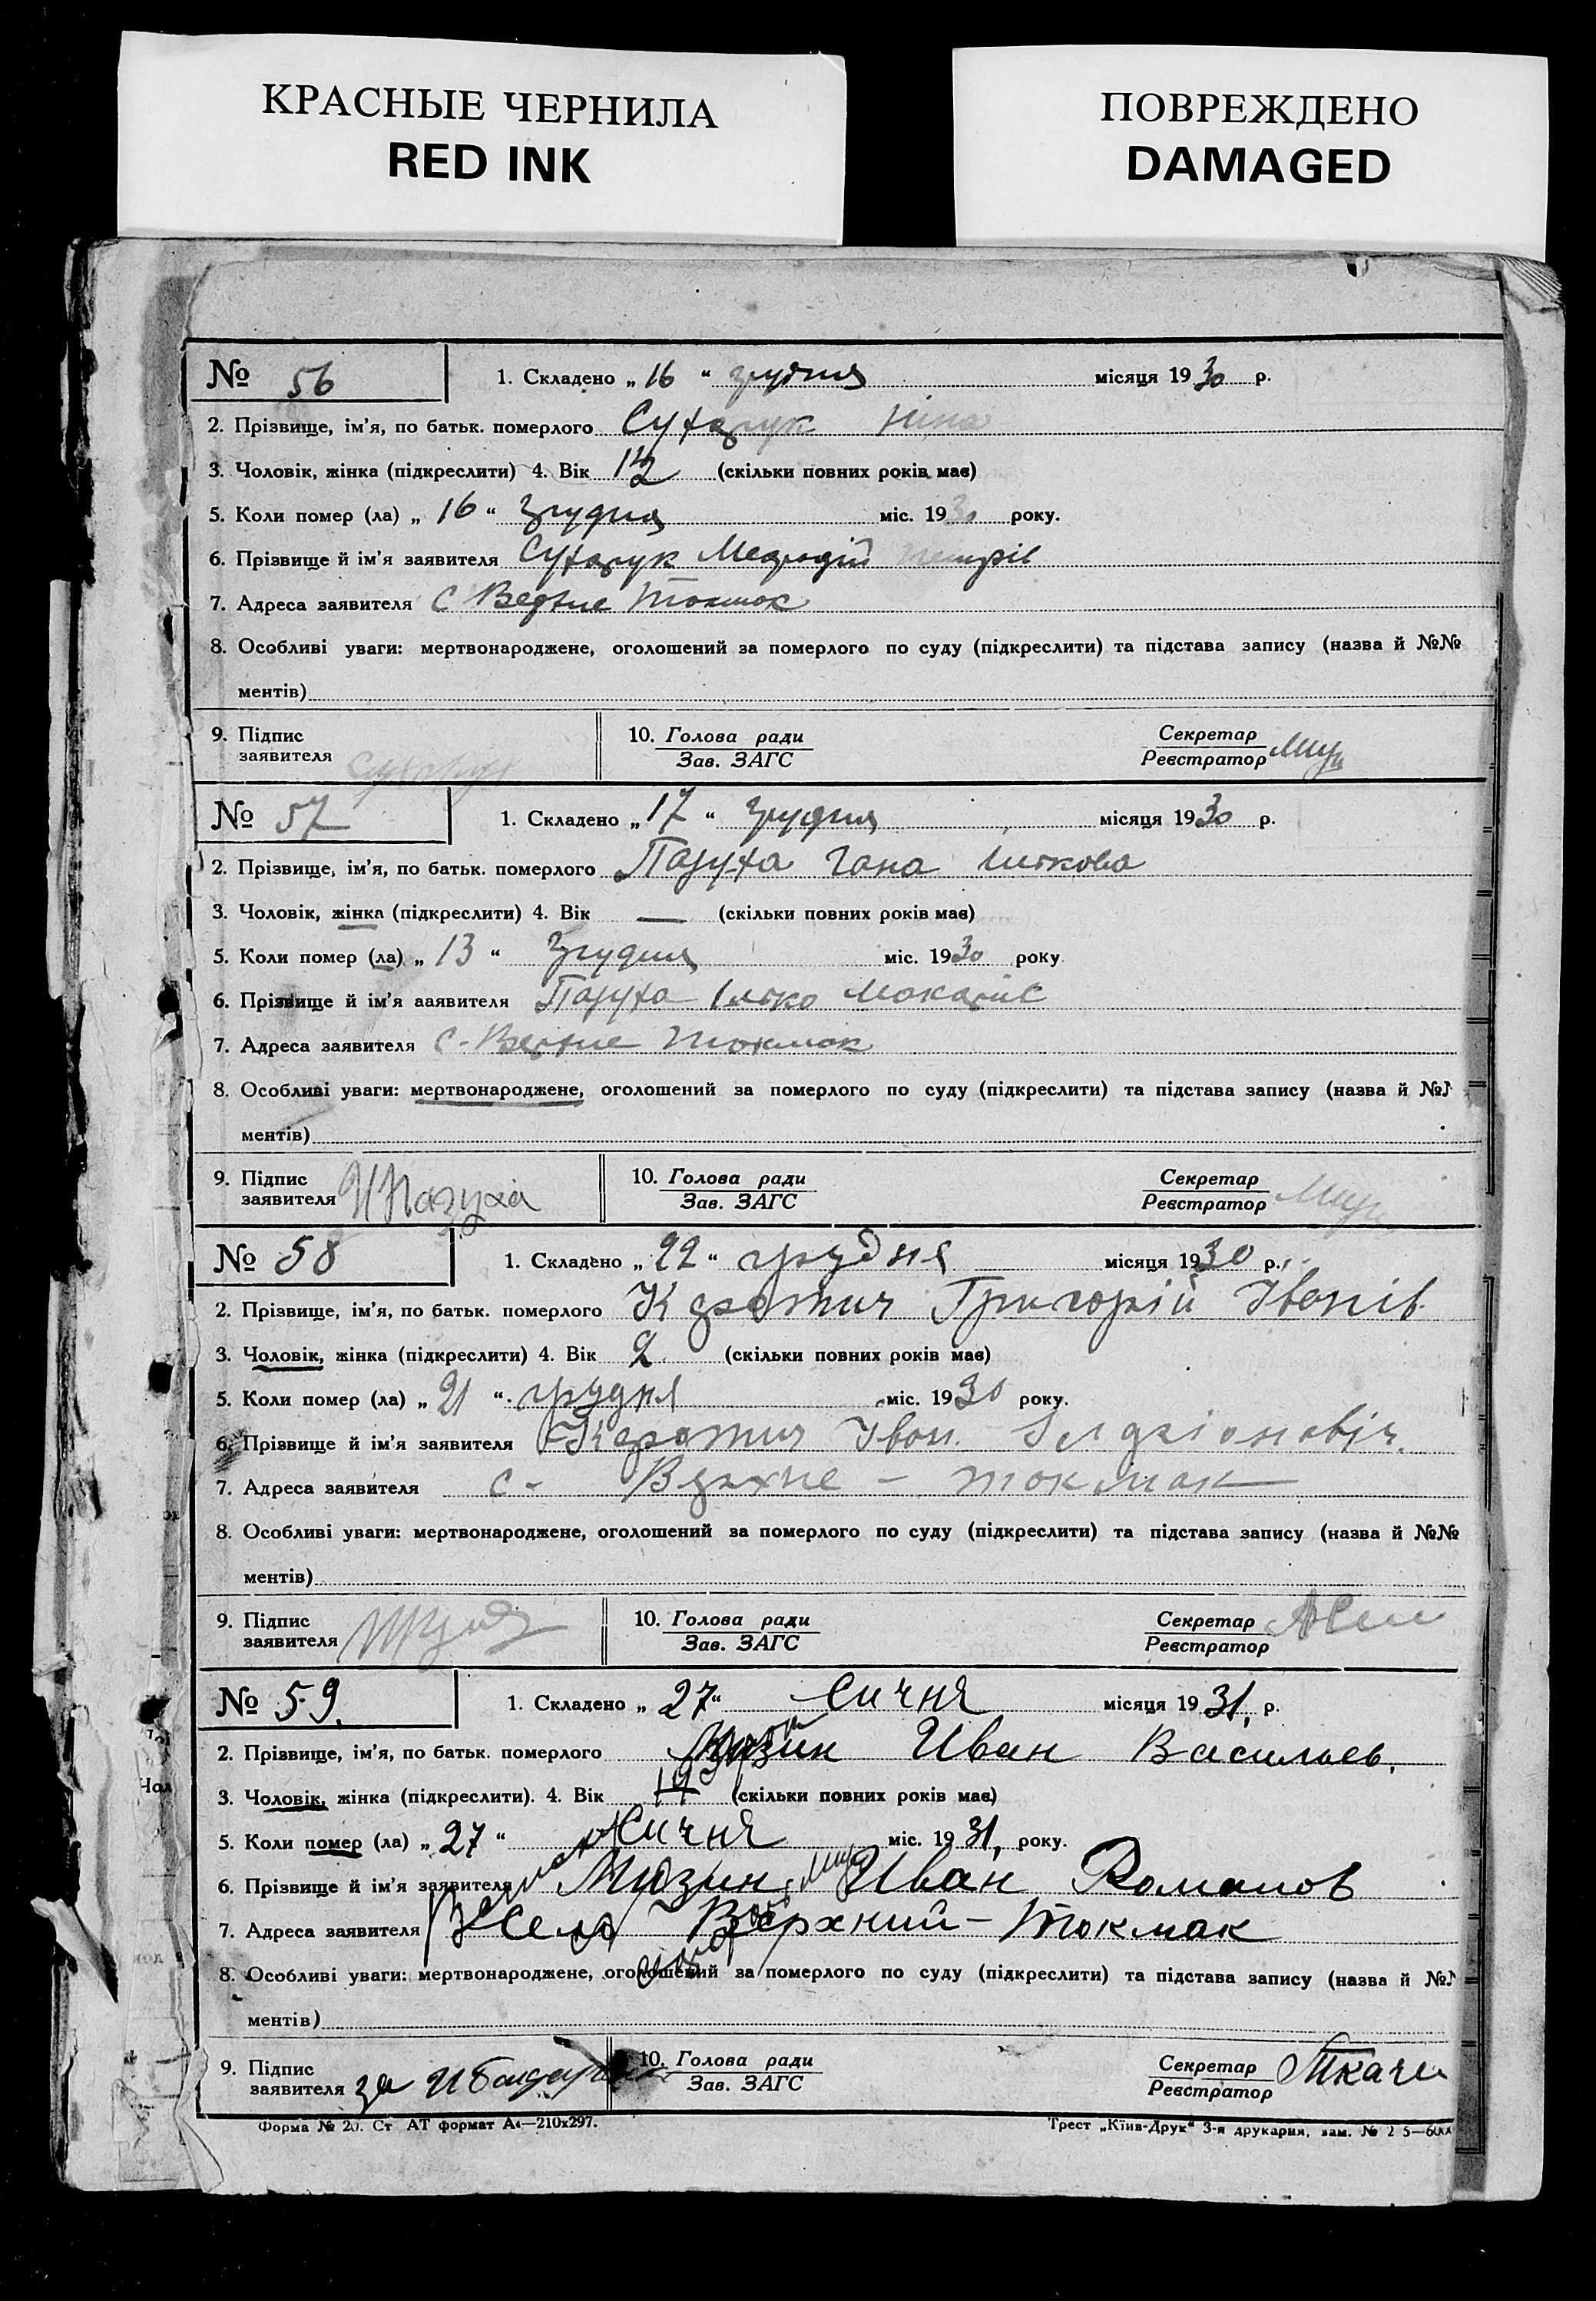 КРАСНЫЕ ЧЕРНИЛА
RED INK
ПОВРЕЖДЕНО
DAMAGED
№ 56 1. Складено „ 16 “ грудня місяця 1930 р.
2. Прізвище, ім'я, по батьк. померлого Сухарук Ніна
3. Чоловік, жінка (підкреслити) 4. Вік (скільки повних років має)
5. Коли помер (ла) „ 16 “ грудня міс. 1930 року.
6. Прізвище й ім'я заявителя Сухарук Петрів
7. Адреса заявителя с Верхне Токмак
8. Особливі уваги: мертвонароджене, оголошений за померлого по суду (підкреслити) та підстава запису (назва й №№
ментів)
9. Підпис заявителя Сухарук 10. Голова ради Зав. ЗАГС Секретар Реєстратор
№ 57 1. Складено „ 17 “ грудня місяця 1930 р.
2. Прізвище, ім'я, по батьк. померлого Пазуха Гана Ількова
3. Чоловік, жінка (підкреслити) 4. Вік — (скільки повних років має)
5. Коли помер (ла) „ 13 “ грудня міс. 1930 року
6. Прізвище й ім'я ааявителя Пазуха Ілько Макарів
7. Адреса заявителя с. Верхне Токмак
8. Особливі уваги: мертвонароджене, оголошений за померлого по суду (підкреслити) та підстава запису (назва й №
ментів)
9. Підпис заявителя И Пазуха 10. Голова ради Зав. ЗАГС Секретар Реєстратор
№ 58 1. Складено „ 22 “ грудня місяця 1930 р.
2. Прізвище, ім'я, по батьк. померлого Григорій Іванів
3. Чоловік, жінка (підкреслити) 4. Вік 2 (скільки повних років має)
5. Коли помер (ла) „ 21 “ грудня міс. 1930 року.
6. Прізвище й ім'я заявителя Іван
7. Адреса заявителя с - Верхне - токмак
8. Особливі уваги: мертвонароджене, оголошений за померлого по суду (підкреслити) та підстава запису (назва й №№
ментів)
9. Підпис заявителя 10. Голова ради Зав. ЗАГС Секретар Реєстратор
№ 59. 1. Складено „ 27 “ Сичня місяця 1931, р.
2. Прізвище, ім'я, по батьк. померлого Мизин Иван Васильев.
3. Чоловік, жінка (підкреслити). 4. Вік (скільки повних років має)
5. Коли помер (ла) „ 27 “ Сичня міс. 1931, року.
6. Прізвище й ім'я заявителя Мизин Иван Романов
7. Адреса заявителя Село Верхний - Токмак
8. Особливі уваги: мертвонароджене, оголошений за померлого по суду (підкреслити) та підстава запису (назва й №
ментів)
9. Підпис заявителя за 10. Голова ради Зав. ЗАГС Секретар Реєстратор
Форма № 20. Ст АТ формат А4—210х297.
Трест „Київ-Друк“ 3-я друкарня, зам. №